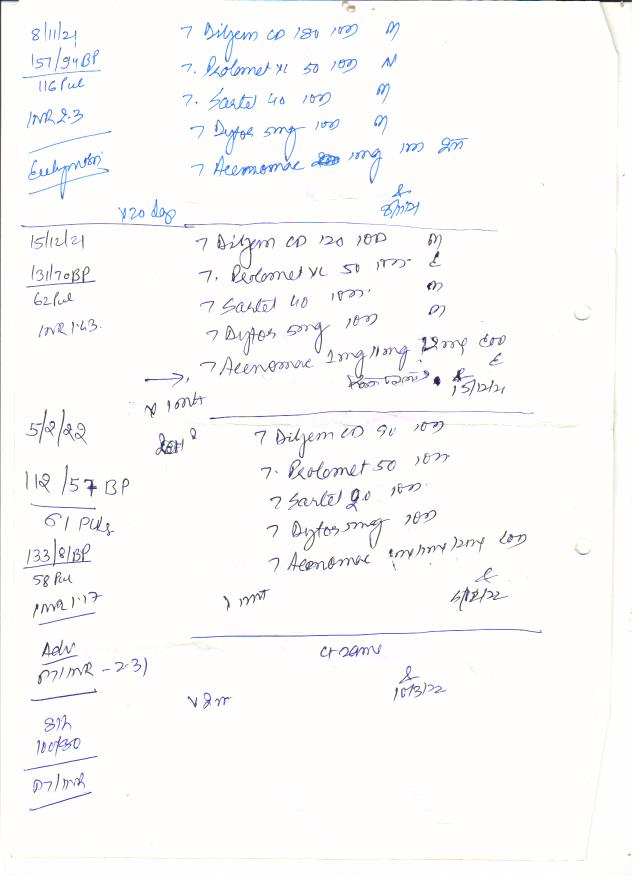 8/11/21
157/94BP
116 Pul
INR 2.3
Ecchymosis
7 Dilzem CD 180 10D M
7. Prolomet XL 50 10D N
7. Sartel 40 10D M
7 Dytor 5mg 10D M
7 Acenomac 1mg 10D
x20 days
8/11/21
15/12/21
131/70BP
62 Pul
INR 1.43.
7 Dilzem CD 120 10D M
7. Prolomet XL 50 10D
7 Sartel 40 10D. M
7 Dytor 5mg 10D M
7 Acenomac 1mg/1mg
15/12/21
5/2/22
112/57 BP
61 Puls
133/81BP
58 Pul
INR 1.17
7 Dilzem CD 90 10D
7. Prolomet 50 10D
7 Sartel 20 10D.
7 Dytor 5mg 10D
7 Acenomac
Adv
PT/INR - 2.3)
Ct same
10/3/22
PT/INR